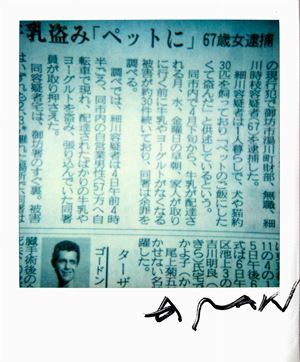 乳盗み「ペットに」 67歳女逮捕
の現行犯で御坊市湯川町財部、無職、細
川時枝容疑者(67)を逮捕した。
細川容疑者は1人暮らしで、犬や猫約
30匹を飼っており「ペットのご飯にした
くて盗んだ」と供述しているという。
同市内で4月下旬から、牛乳が配達さ
れる月、水、金曜日の早朝、家人が取り
に行く前に牛乳やヨーグルトがなくなる
被害が約30件続いており、同署は余罪を
調べる。
調べでは、細川容疑者は4日午前4時
半ごろ、同市内の自営業男性(57)方へ自
転車で現れ、配達されたばかりの牛乳や
ヨーグルトを盗み、張り込んでいた同署
員が取り押さえた。
同容疑者宅は、御坊署のすぐ裏。被害
11の4の
5日午後6
式は6日午
区池上3の
吉川明良(
きら)氏宅
かよ子(か
尾上菊五
かせない名
躍した。
ターザ
ゴードン
臓手術後の